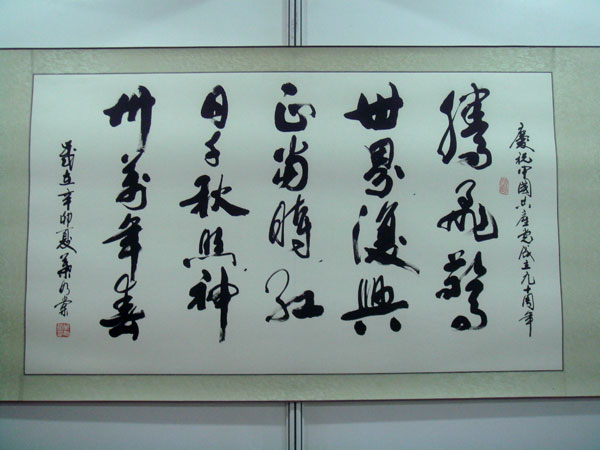 慶祝中國共產党成立九十周年
騰飛驚
世界復興
正當時紅
日千秋照神
州萬年春
歲在辛卯夏